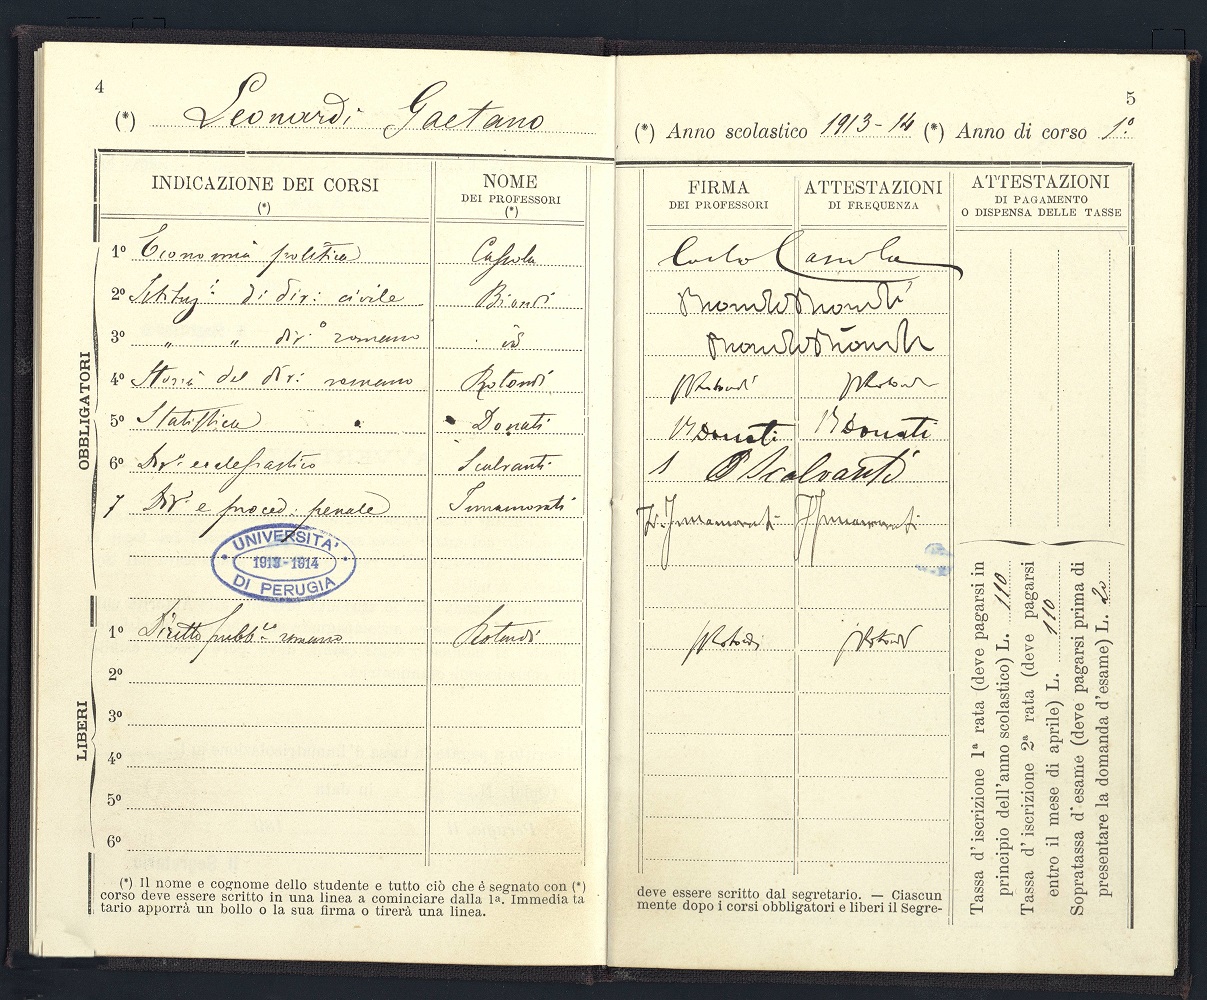 4
(*) Leonardi Gaetano
INDICAZIONE DEI CORSI
(*)
NOME
DEI PROFESSORI
(*)
OBBLIGATORI
1º Economia politica Cassola
2º Istituz.i di dir: civile Biondi
3º " " dirº romano id
4º Storia del dir: romano Rotondi
5º Statistica Donati
6º Dirº ecclesiastico Scalvanti
7 Dirº e proced: penale Innamorati
UNIVERSITA'
1913-1914
DI PERUGIA
LIBERI
1º Diritto pubb.co romano Rotondi
2º
3º
4º
5º
6º
(*) Il nome e cognome dello studente e tutto ciò che è segnato con (*)
corso deve essere scritto in una linea a cominciare dalla 1ª. Immedia ta
tario apporrà un bollo o la sua firma o tirerà una linea.
5
(*) Anno scolastico 1913-14 (*) Anno di corso 1º
FIRMA
DEI PROFESSORI
ATTESTAZIONI
DI FREQUENZA
ATTESTAZIONI
DI PAGAMENTO
O DISPENSA DELLE TASSE
Carlo Cassola
Biondo Biondi
Biondo Biondi
Rotondi Rotondi
Donati Donati
Scalvanti
Innamorati Innamorati
Rotondi Rotondi
Tassa d'iscrizione 1ª rata (deve pagarsi in
principio dell'anno scolastico) L. 110
Tassa d'iscrizione 2ª rata (deve pagarsi
entro il mese di aprile) L. 110
Sopratassa d'esame (deve pagarsi prima di
presentare la domanda d'esame) L. 20
deve essere scritto dal segretario. — Ciascun
mente dopo i corsi obbligatori e liberi il Segre-